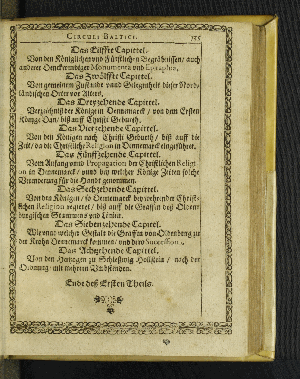 CIRCULI BALTICI.
Das Eilffte Capittel.
Von den Königlichen und Fürstlichen Begräbnissen / auch
anderer Denckwirdigen Monumenta und Epitaphia.
Das Zwölffte Capittel.
Von gemeinem Zustande und Gelegenheit dieser Nord-
ländischen Örter vor Alters.
Das Dreyzehende Capittel.
Verzeichnüß der Königen in Dennemarck / von dem Ersten
Könige Dan / biß auff Christi Geburth.
Das Vierzehende Capittel.
Von den Königen nach Christi Geburth / biß auff die
Zeit / da die Christliche Religion in Dennemarck eingeführet.
Das Fünffzehende Capittel.
Vom Anfang und Propagation der Christlichen Religi-
on in Dennemarck / und bey welcher Könige Zeiten solche
Veränderung für die Hande genommen.
Das Sechzehende Capittel.
Von den Königen / so Dennemarck bey wehrender Christ-
lichen Religion regieret / biß auff die Graffen deß Olden-
burgischen Stammens und Lineæ.
Das Siebenzehende Capittel.
Wie und welcher Gestalt die Graffen von Oldenburg zu
der Krohn Dennemarck kommen / und dero Succession.
Das Achzehende Capittel.
Von den Hertzogen zu Schleßwig Hollstein / nach der
Ordnung / mit mehrern Umbständen.
Ende deß Ersten Theils.